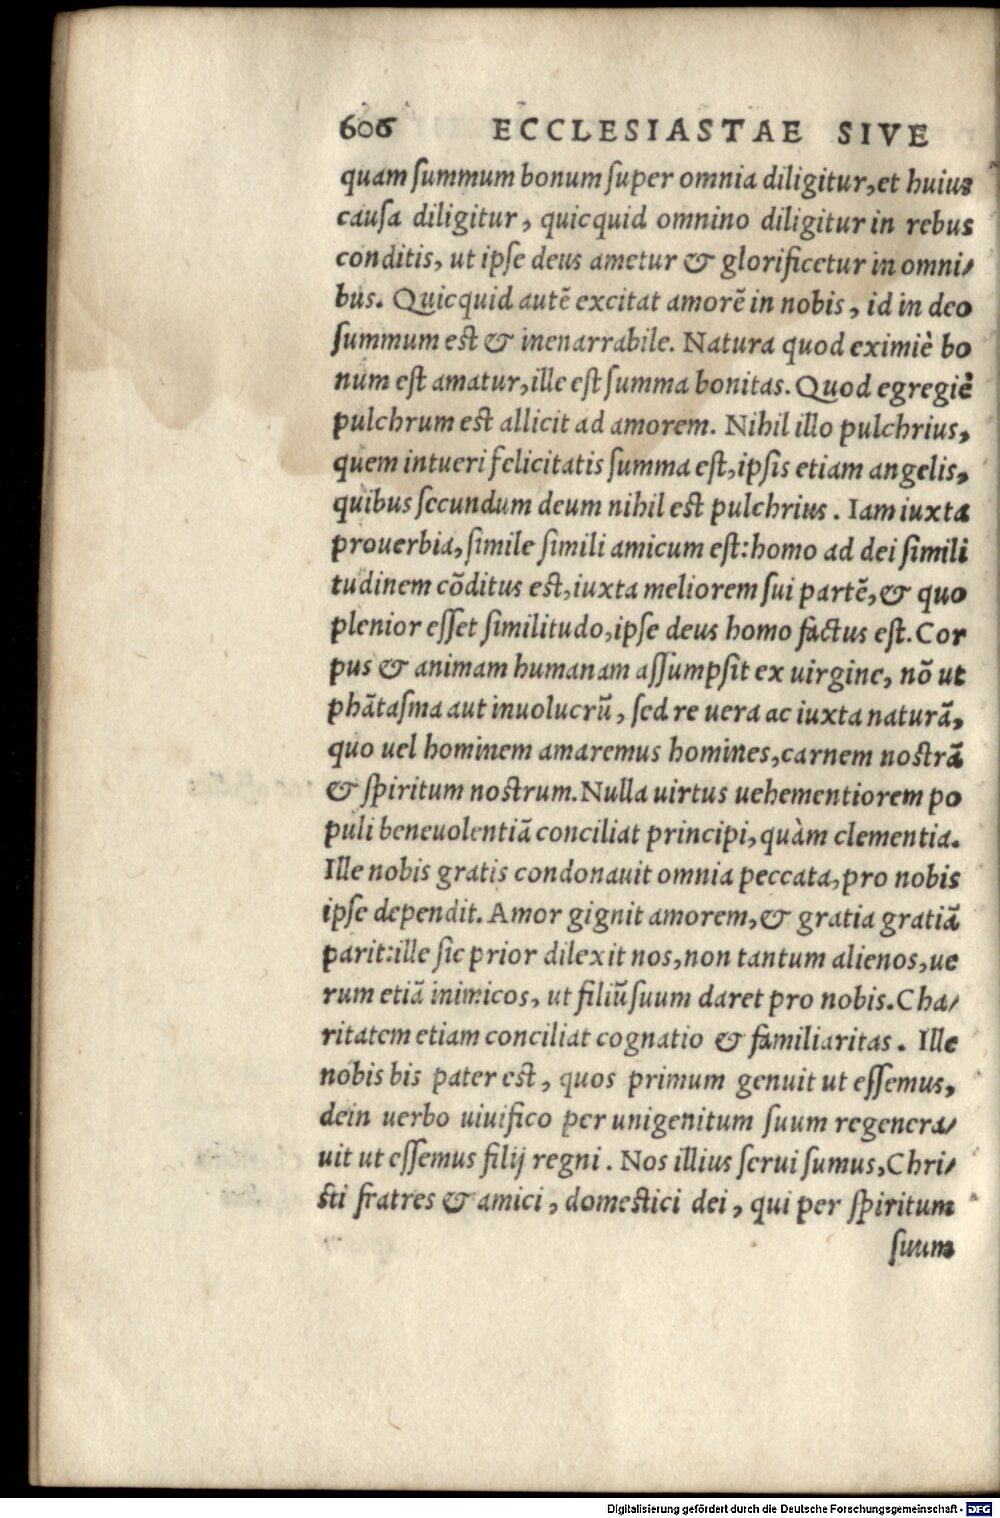 606 ECCLESIASTAE SIVE
quam ſummum bonum ſuper omnia diligitur, et huius
cauſa diligitur, quicquid omnino diligitur in rebus
conditis, ut ipſe deus ametur & glorificetur in omni/
bus. Quicquid autē excitat amorē in nobis, id in deo
ſummum eſt & inenarrabile. Natura quod eximiè bo
num eſt amatur, ille eſt ſumma bonitas. Quod egregiè
pulchrum eſt allicit ad amorem. Nihil illo pulchrius,
quem intueri felicitatis ſumma eſt, ipſis etiam angelis,
quibus ſecundum deum nihil eſt pulchrius. Iam iuxta
prouerbia, ſimile ſimili amicum eſt: homo ad dei ſimili
tudinem cōditus eſt, iuxta meliorem ſui partē, & quo
plenior eſſet ſimilitudo, ipſe deus homo factus eſt. Cor
pus & animam humanam aſſumpſit ex uirgine, nō ut
phātaſma aut inuolucrū, ſed re uera ac iuxta naturā,
quo uel hominem amaremus homines, carnem noſtrā
& ſpiritum noſtrum. Nulla uirtus uehementiorem po
puli beneuolentiā conciliat principi, quàm clementia.
Ille nobis gratis condonauit omnia peccata, pro nobis
ipſe dependit. Amor gignit amorem, & gratia gratiā
parit: ille ſic prior dilexit nos, non tantum alienos, ue
rum etiā inimicos, ut filiū ſuum daret pro nobis. Cha/
ritatem etiam conciliat cognatio & familiaritas. Ille
nobis bis pater eſt, quos primum genuit ut eſſemus,
dein uerbo uiuifico per unigenitum ſuum regenera/
uit ut eſſemus filij regni. Nos illius ſerui ſumus, Chri/
ſti fratres & amici, domeſtici dei, qui per ſpiritum
ſuum
Digitalisierung gefördert durch die Deutsche Forschungsgemeinschaft - DFG